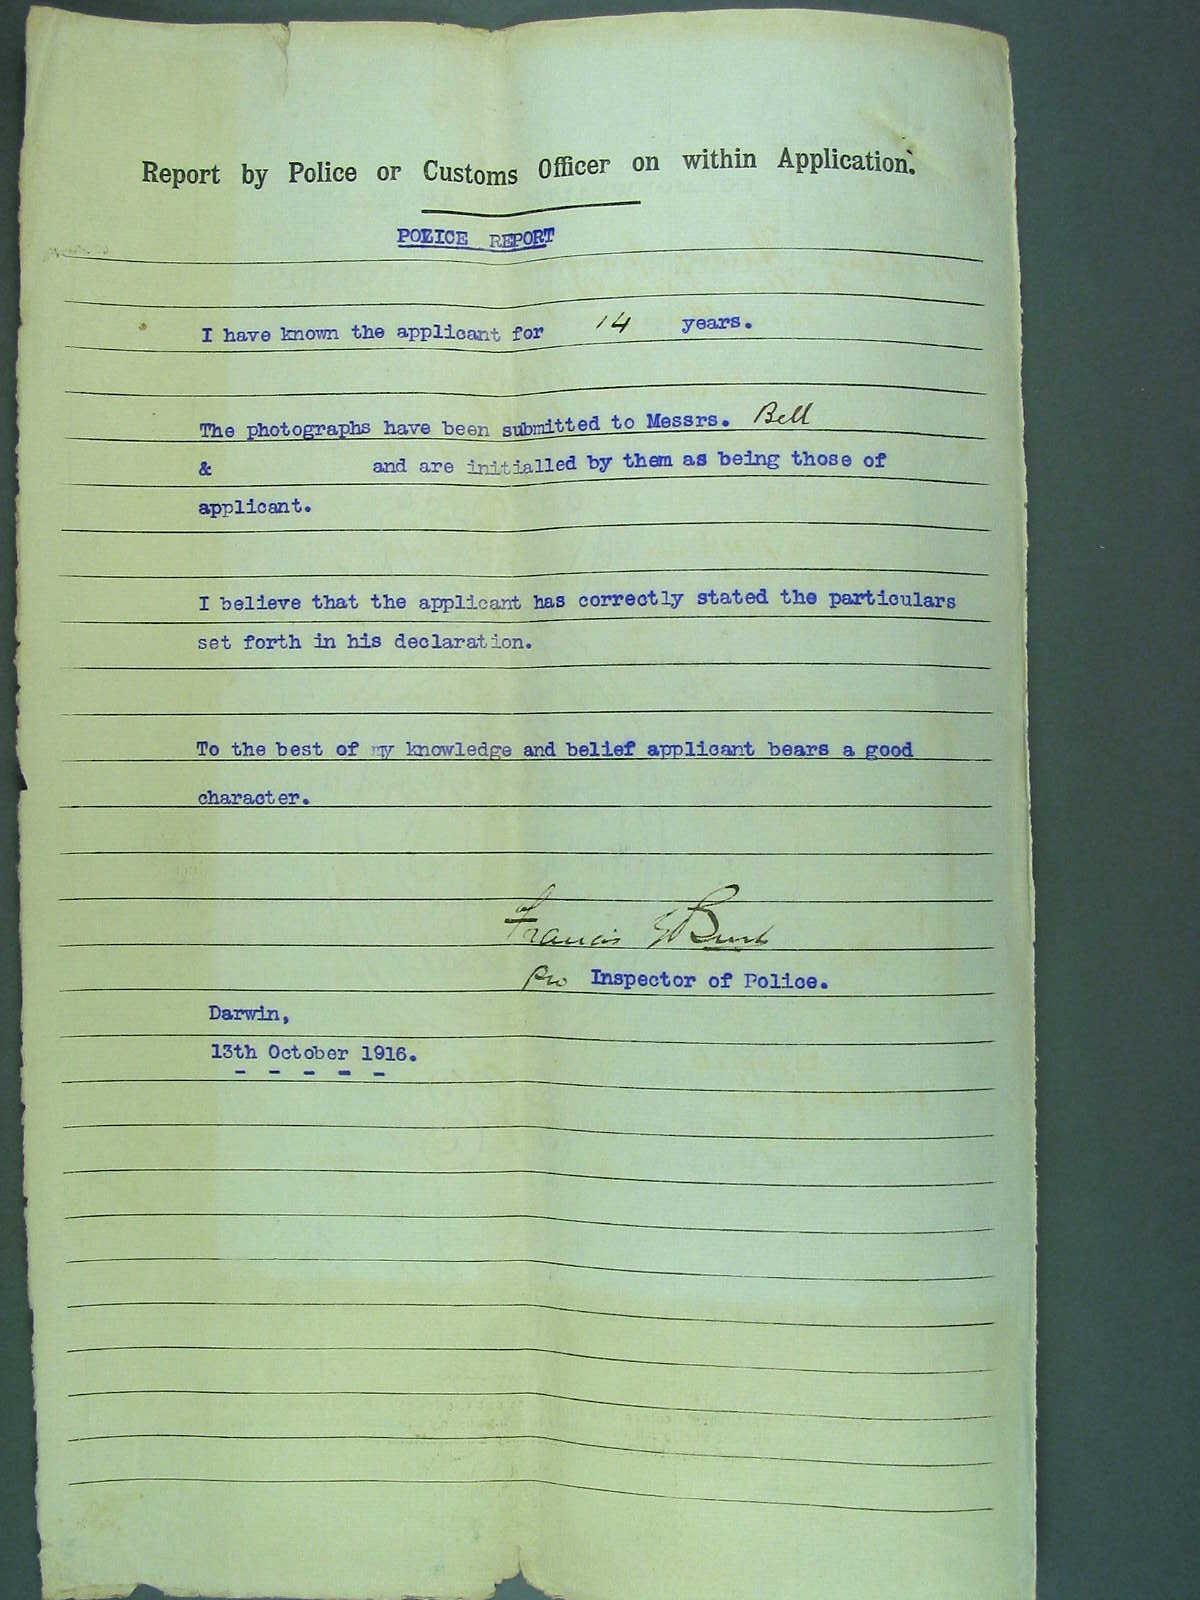 Report by Police or Customs Officer on within Application.
POLICE REPORT
I have known the applicant for 14 years.
The photographs have been submitted to Messrs. Bell
& and are initialled by them as being those of
applicant.
I believe that the applicant has correctly stated the particulars
set forth in his declaration.
To the best of my knowledge and belief applicant bears a good
character.
Francis
Inspector of Police.
Darwin,
13th October 1916.
- - - - -